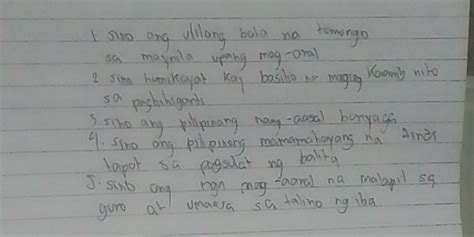 1. sino ang ulilang bata na tumungo
sa maynila upang mag-aral
2. sino humikayat kay basilio na maging Kaanib nito
sa paghihiganti
3. sino ang pilipinang nang-aasal banyaga
4. sino ang pilipinong mamamahayang na
tapat sa pagsulat ng balita
5. sino ang mga mag-aaral na malapit sa
guro at umaasa sa talino ng iba